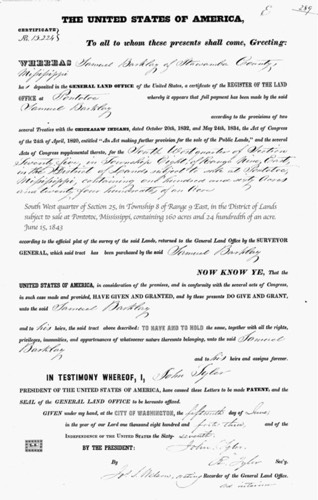 E 289
THE UNITED STATES OF AMERICA,
CERTIFICATE
No. 13,224
To all to whom these presents shall come, Greeting:
WHEREAS Samuel Barkley of Itawamba County,
Mississippi
ha deposited in the GENERAL LAND OFFICE of the United States, a certificate of the REGISTER OF THE LAND
OFFICE at Pontotoc whereby it appears that full payment has been made by the said
Samuel Barkley according to the provisions of two
several Treaties with the CHICKASAW INDIANS, dated October 20th, 1832, and May 24th, 1834, the Act of Congress
of the 24th of April, 1820, entitled "An Act making further provision for the sale of the Public Lands," and the several
Acts of Congress supplemental thereto, for the South West quarter of Section
Twenty five, in Township Eight, of Range Nine, East,
in the District of Lands subject to sale at Pontotoc,
Mississippi, containing one hundred and sixty Acres
and twenty four hundredths of an Acre
South West quarter of Section 25, in Township 8 of Range 9 East, in the District of Lands
subject to sale at Pontotoc, Mississippi, containing 160 acres and 24 hundredth of an acre.
June 15, 1843
according to the official plat of the survey of the said Lands, returned to the General Land Office by the SURVEYOR
GENERAL, which said tract has been purchased by the said Samuel Barkley
NOW KNOW YE, That the
UNITED STATES OF AMERICA, in consideration of the premises, and in conformity with the several acts of Congress,
in such case made and provided, HAVE GIVEN AND GRANTED, and by these presents DO GIVE AND GRANT,
unto the said Samuel Barkley
and to his heirs, the said tract above described: TO HAVE AND TO HOLD the same, together with all the rights,
privileges, immunities, and appurtenances of whatsoever nature thereunto belonging, unto the said Samuel
Barkley and to his heirs and assigns forever.
IN TESTIMONY WHEREOF, I, John Tyler
PRESIDENT OF THE UNITED STATES OF AMERICA, have caused these Letters to be made PATENT, and the
SEAL of the GENERAL LAND OFFICE to be hereunto affixed.
GIVEN under my hand, at the CITY OF WASHINGTON, the fifteenth day of June,
in the year of our Lord one thousand eight hundred and forty three, and of the
INDEPENDENCE OF THE UNITED STATES the Sixty seventh.
BY THE PRESIDENT: John Tyler
By R. Tyler Sec'y.
Jos. S. Wilson, acting Recorder of the General Land Office
ad interim